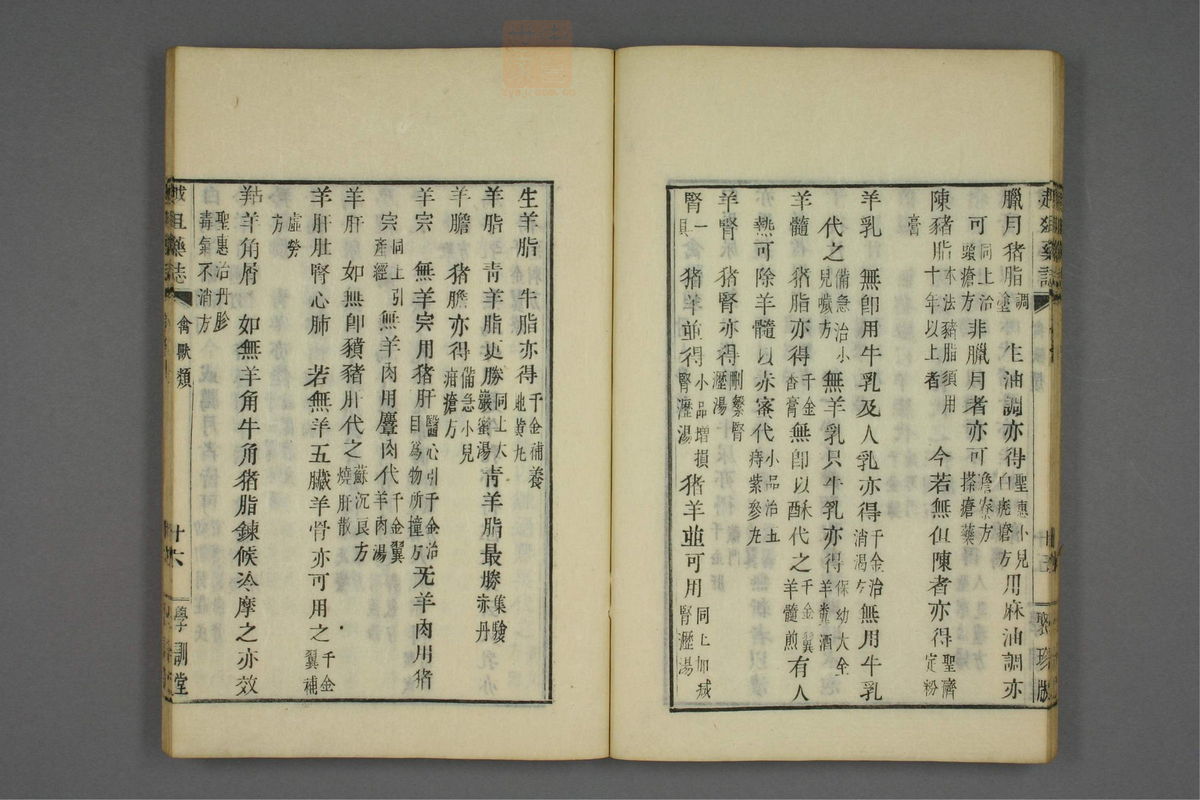 臘月猪脂調塗 生油調亦得聖惠小兒白禿瘡方用麻油調亦
可同上治頭瘡方非臘月者亦可詹寮方搽瘡藥
陳豬脂本法豬脂須用十年以上者 今若無但陳者亦得聖濟定粉
膏
羊乳 無卽用牛乳及人乳亦得千金治消渴方無用牛乳
代之備急治小兒噦方無羊乳只牛乳亦得保幼大全羊糞酒
羊髓 猪脂亦得千金香膏無卽以酥代之千金翼羊髓煎有人
熱可除羊髓以赤蜜代小品治五痔紫參丸
羊腎 猪腎亦得刪繁腎瀝湯
腎一具 猪羊並得小品增損腎瀝湯猪羊並可用同上加減腎瀝湯
聚珍版
生羊脂 牛脂亦得千金補養地黄丸
羊脂 青羊脂更勝同上大巖蜜湯青羊脂最勝集驗赤丹
羊膽 猪膽亦得備急小兒疳瘡方
羊肉 無羊肉用猪肝醫心引千金治目為物所撞方无羊肉用猪
肉同上引産經無羊肉用麞肉代千金翼羊肉湯
羊肝 如無卽獖猪肝代之蘇沉良方燒肝散
羊肝肚腎心肺 若無羊五臟羊骨亦可用之千金翼補
虛勞方
羖羊角屑 如無羊角牛角猪脂鍊候冷摩之亦效
聖惠治丹胗毒氣不消方
禽獸類
十六
學訓堂